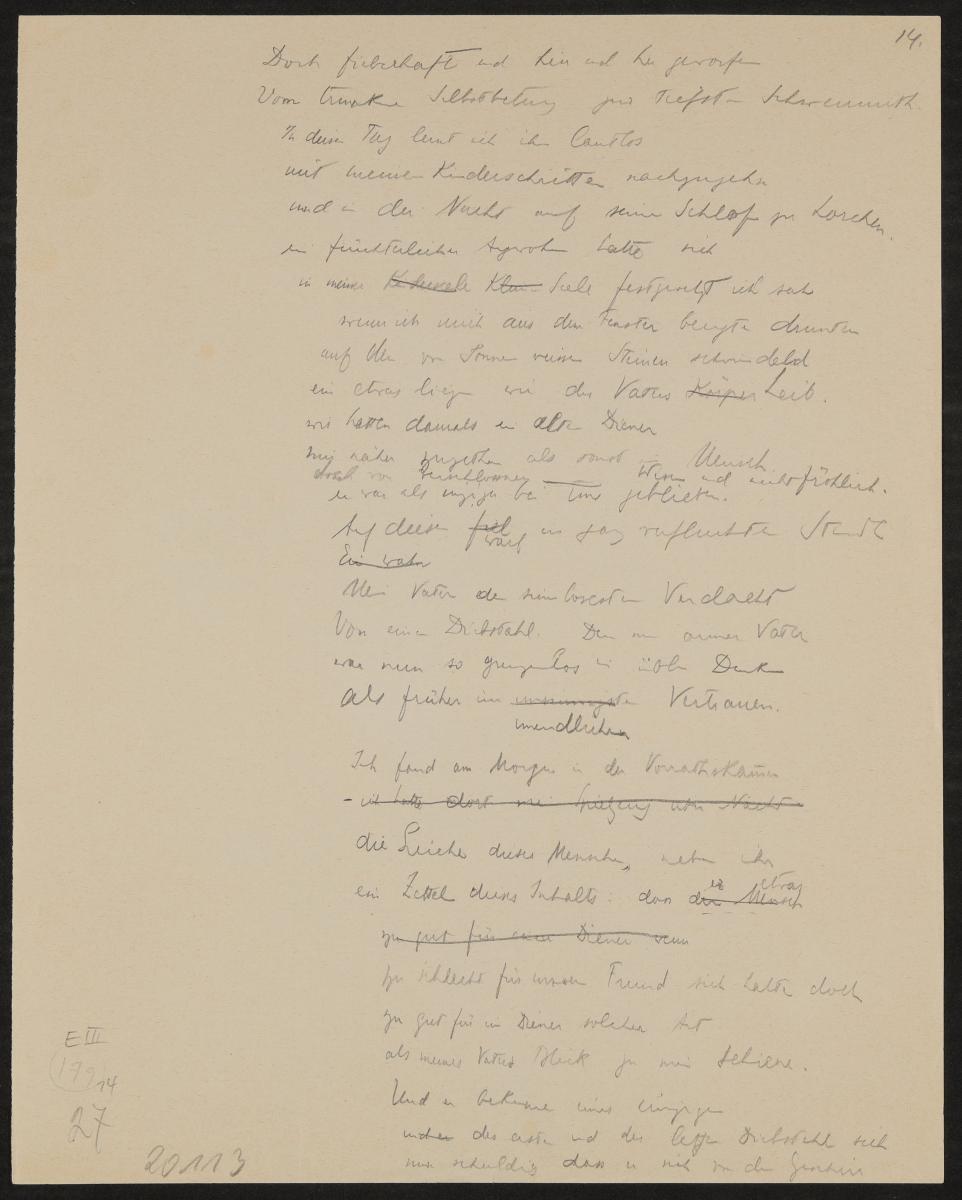 14.
Doch fieberhaft und hin und her geworfen
Vom trunkner Selbstbetung zur tiefsten Schwermuth.
In diesen Tag lernt ich ihm lautlos
mit meinen Kinderschritten nachzugehn
und in der Nacht auf seinen Schlaf zu horchen.
ein fürchterlicher Argwohn hatte sich
in meiner Seele festgesetzt ich sah
wenn ich mich aus dem Fenster beugte drunten
auf den von Sonne weissen Steinen schwindelnd
ein etwas liegen wie des Vaters Körper Leib.
wir hatten damals ein alten Diener
mir näher zugethan als sonst ein Mensch
doch von verschlossenem Wesen und nicht fröhlich.
er war als einziger bei uns geblieben.
Auf diesen fiel warf in ganz verfluchter Stunde
Ein wahn
Mein Vater den sinnlosesten Verdacht
Von einem Diebstahl. Denn mein armer Vater
war nun so grenzenlos in üblem Denken
als früher im unsinnigsten Vertrauen.
unendlichen
Ich fand am Morgen in der Vorrathskammer
– ich hatte dort mein Spielzeug Nachts –
die Leiche dieses Menschen, neben ihr
ein Zettel dieses Inhalts: dass der Mensch
er etwas
zu gut für einen Diener wenn
zu schlecht für unsern Freund sich halte doch
zu gut für ein Diener solcher Art
als meines Vaters Blick zu mein schiene.
Und er bekenne eines einzigen
des ersten und des letzten Diebstahls sich
nun schuldig dass er sich von den
E III
179 14
27
20113